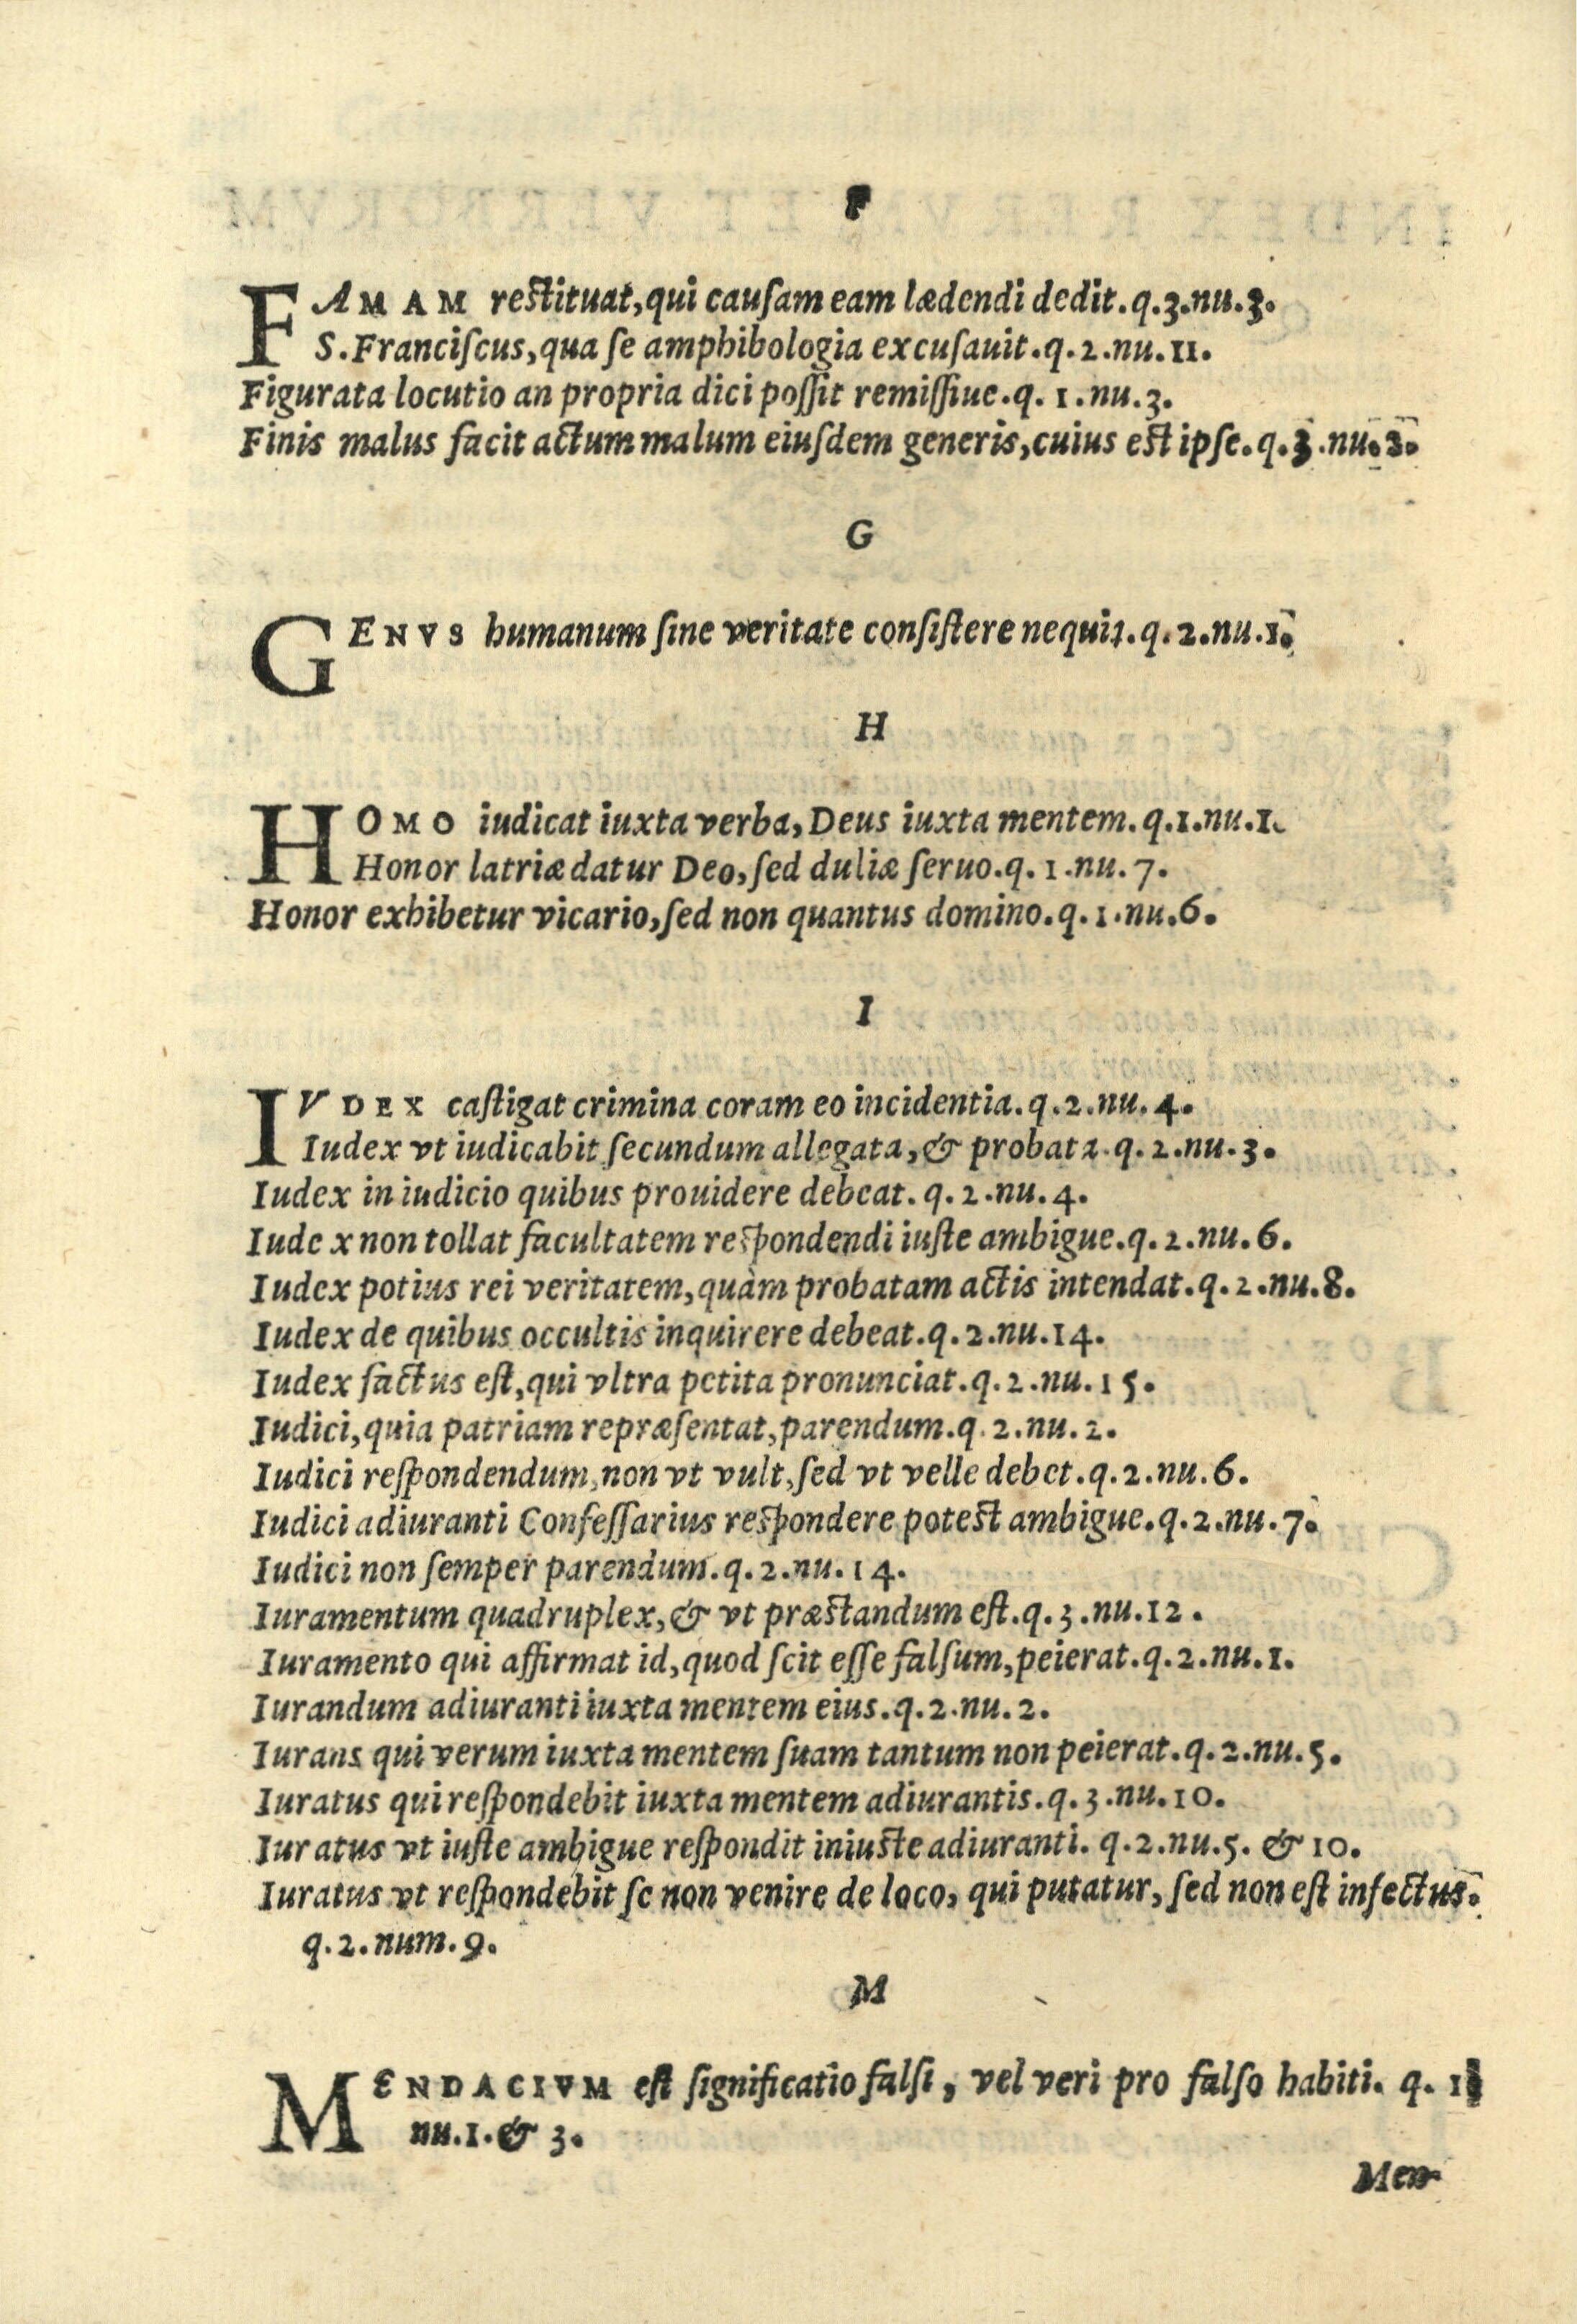 F
FAMAM restituat, qui causam eam lædendi dedit. q. 3. nu. 3.
S. Franciſcus, qua ſe amphibologia excuſauit. q. 2. nu. 11.
Figurata locutio an propria dici poſſit remiſſiue. q. 1. nu. 3.
Finis malus facit actum malum eiuſdem generis, cuius est ipſe. q. 3. nu. 3.
G
GENVS humanum ſine veritate conſiſtere nequit. q. 2. nu. 1.
H
HOMO iudicat iuxta verba, Deus iuxta mentem. q. 1. nu. 1.
Honor latriæ datur Deo, ſed duliæ ſeruo. q. 1. nu. 7.
Honor exhibetur vicario, ſed non quantus domino. q. 1. nu. 6.
I
IVDEX caſtigat crimina coram eo incidentia. q. 2. nu. 4.
Iudex vt iudicabit ſecundum allegata, & probata. q. 2. nu. 3.
Iudex in iudicio quibus prouidere debeat. q. 2. nu. 4.
Iudex non tollat facultatem reſpondendi iuſte ambigue. q. 2. nu. 6.
Iudex potius rei veritatem, quàm probatam actis intendat. q. 2. nu. 8.
Iudex de quibus occultis inquirere debeat. q. 2. nu. 14.
Iudex factus eſt, qui vltra petita pronunciat. q. 2. nu. 15.
Iudici, quia patriam repræſentat, parendum. q. 2. nu. 2.
Iudici reſpondendum, non vt vult, ſed vt velle debet. q. 2. nu. 6.
Iudici adiuranti Confeſſarius reſpondere potest ambigue. q. 2. nu. 7.
Iudici non ſemper parendum. q. 2. nu. 14.
Iuramentum quadruplex, & vt præstandum eſt. q. 3. nu. 12.
Iuramento qui affirmat id, quod ſcit eſſe falſum, peierat. q. 2. nu. 1.
Iurandum adiuranti iuxta mentem eius. q. 2. nu. 2.
Iurans qui verum iuxta mentem ſuam tantum non peierat. q. 2. nu. 5.
Iuratus qui reſpondebit iuxta mentem adiurantis. q. 3. nu. 10.
Iuratus vt iuſte ambigue reſpondit iniuste adiuranti. q. 2. nu. 5. & 10.
Iuratus vt reſpondebit ſe non venire de loco, qui putatur, ſed non eſt infectus.
q. 2. num. 9.
M
MENDACIVM eſt ſignificatio falſi, vel veri pro falſo habiti. q. 1
nu. 1. & 3.
Men-